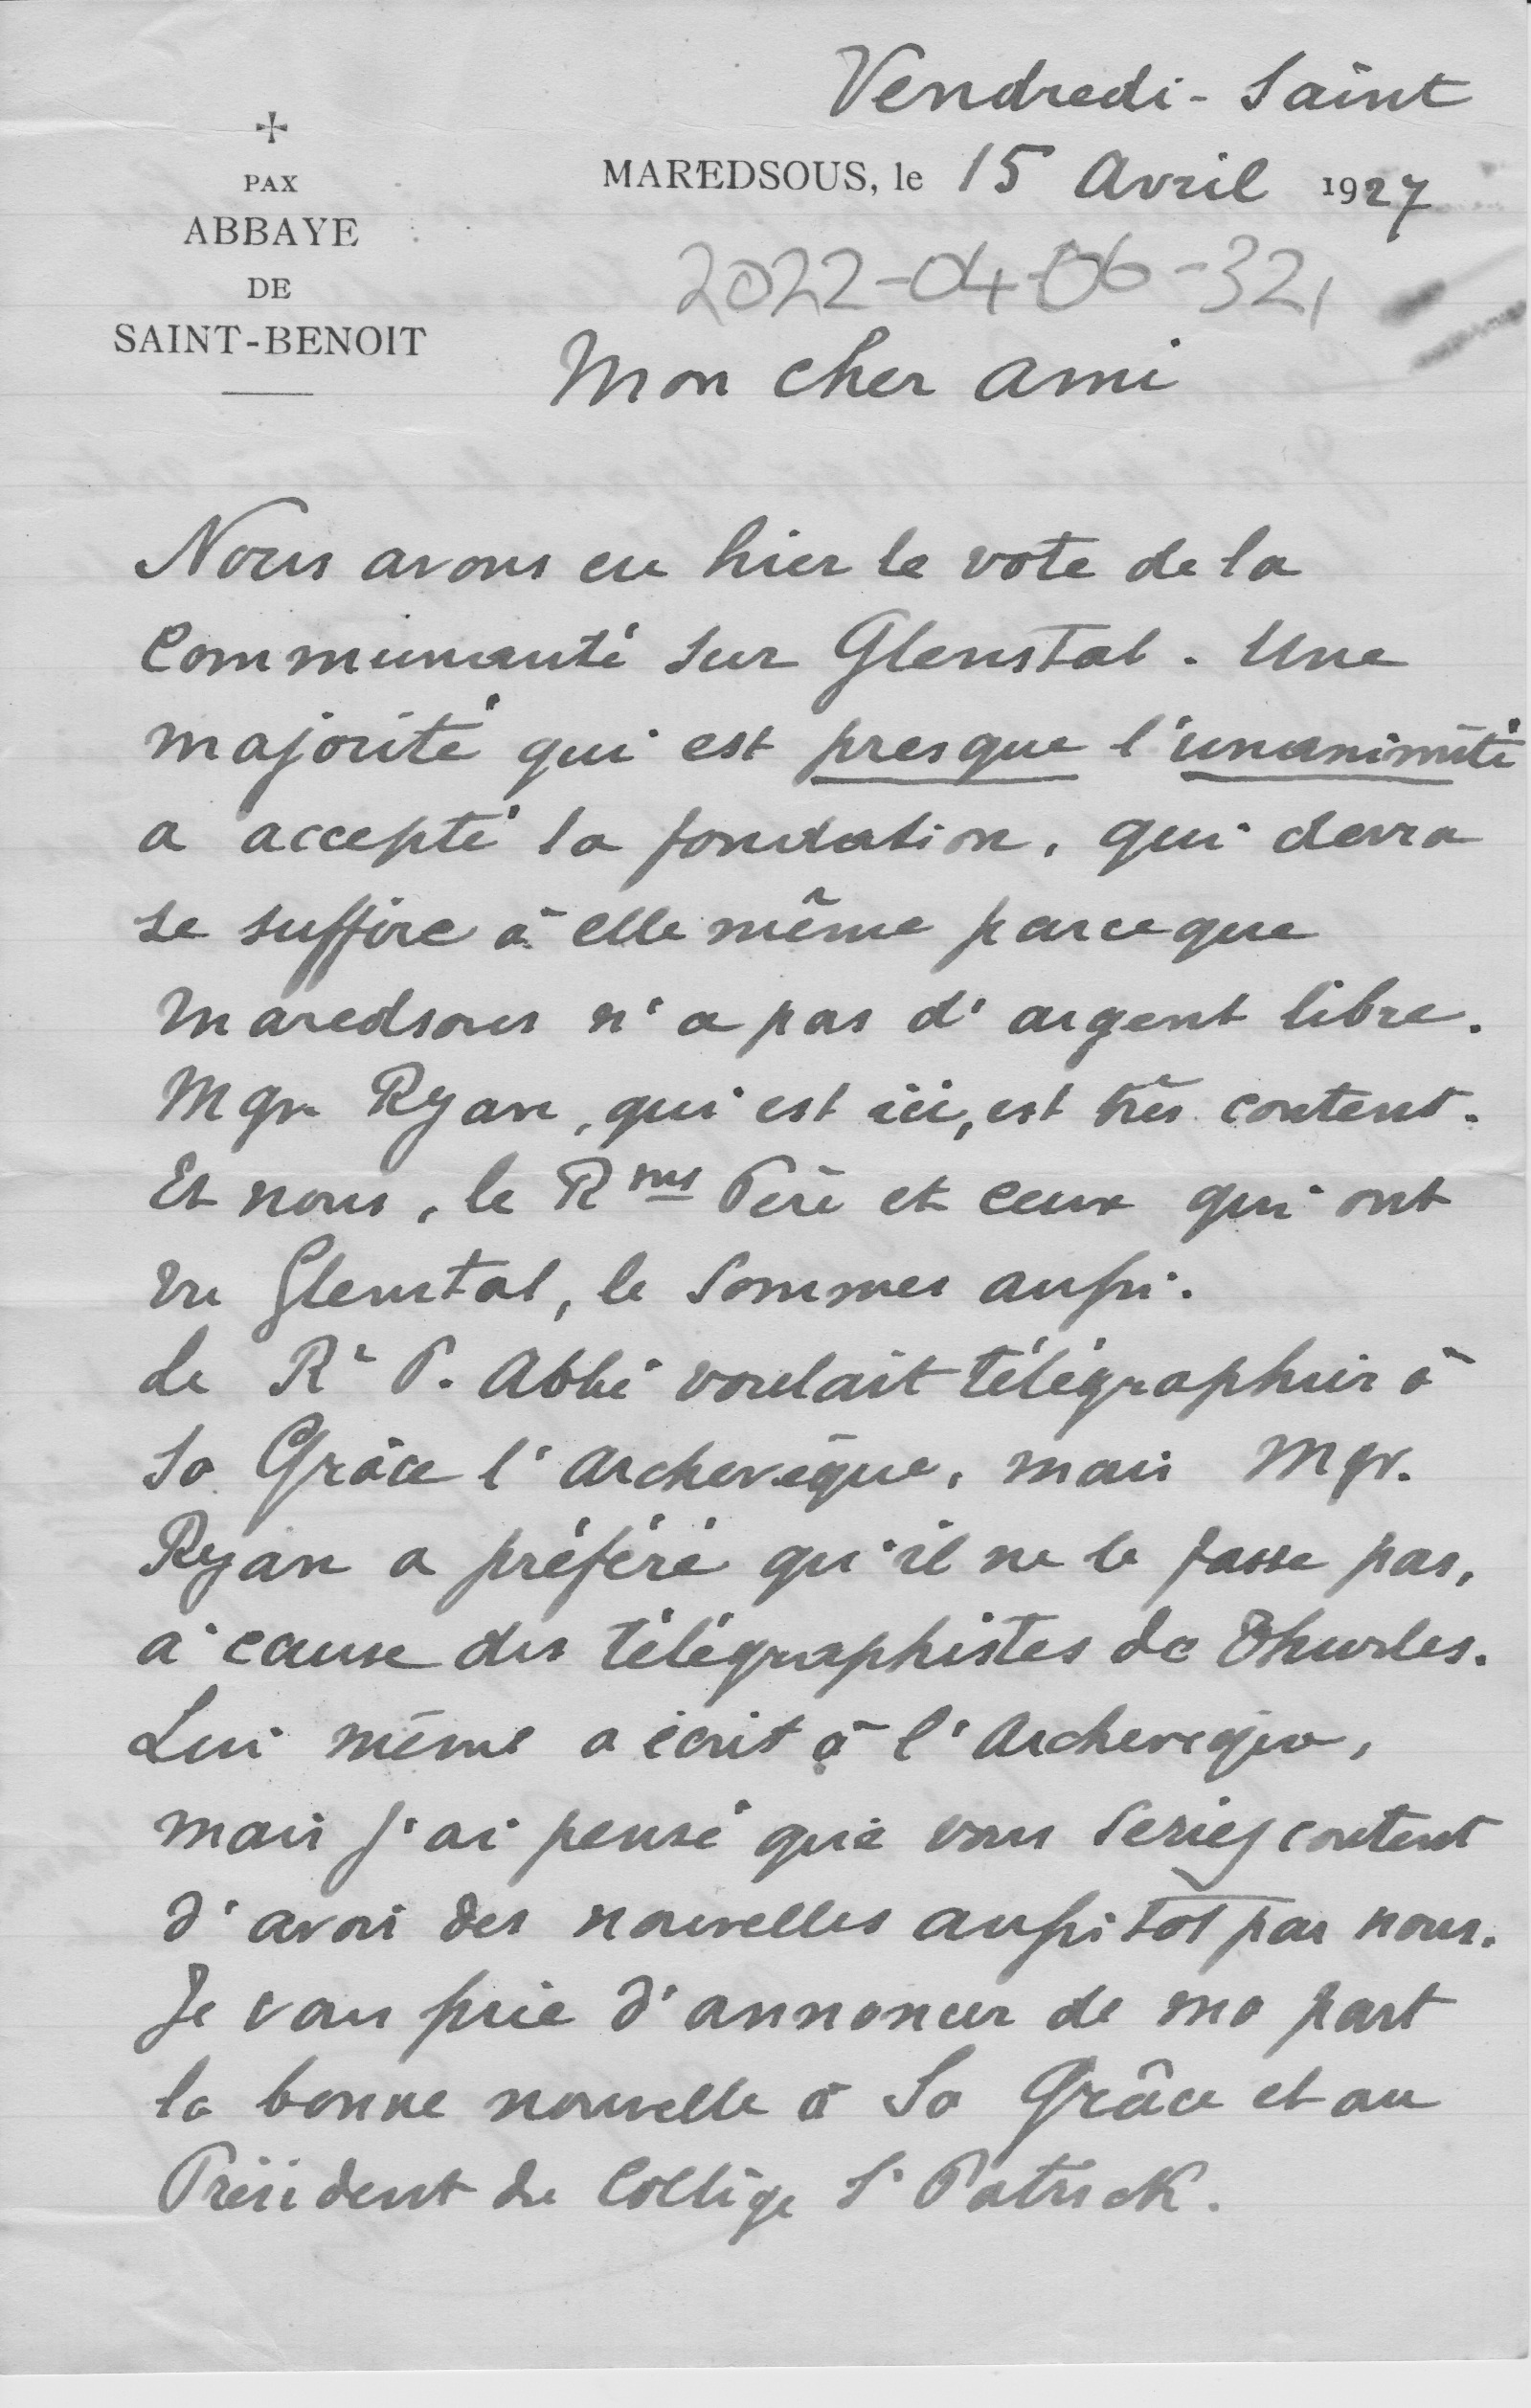 Vendredi-Saint
✝
PAX
ABBAYE
DE
SAINT-BENOIT
MAREDSOUS, le 15 Avril 1927
2022-04-06-32,
Mon cher ami
Nous avons eu hier le vote de la
Communauté sur Glenstal. Une
majorité qui est presque l'unanimité
a accepté la fondation, qui devra
se suffire à elle même parceque
Maredsous n'a pas d'argent libre.
Mgr Ryan, qui est ici, est très content.
Et nous, le Rme Père et ceux qui ont
vu Glenstal, le sommes aussi.
Le Re P. Abbé voulait télégraphier à
Sa Grâce l'Archevêque, mais Mgr.
Ryan a préféré qu'il ne le fasse pas,
à cause des télégraphistes de Thurles.
Lui même a écrit à l'Archevêque,
mais j'ai pensé que vous seriez content
d'avoir des nouvelles aussitôt par nous.
Je vous prie d'annoncer de ma part
la bonne nouvelle à Sa Grâce et au
Président du Collège St Patrick.